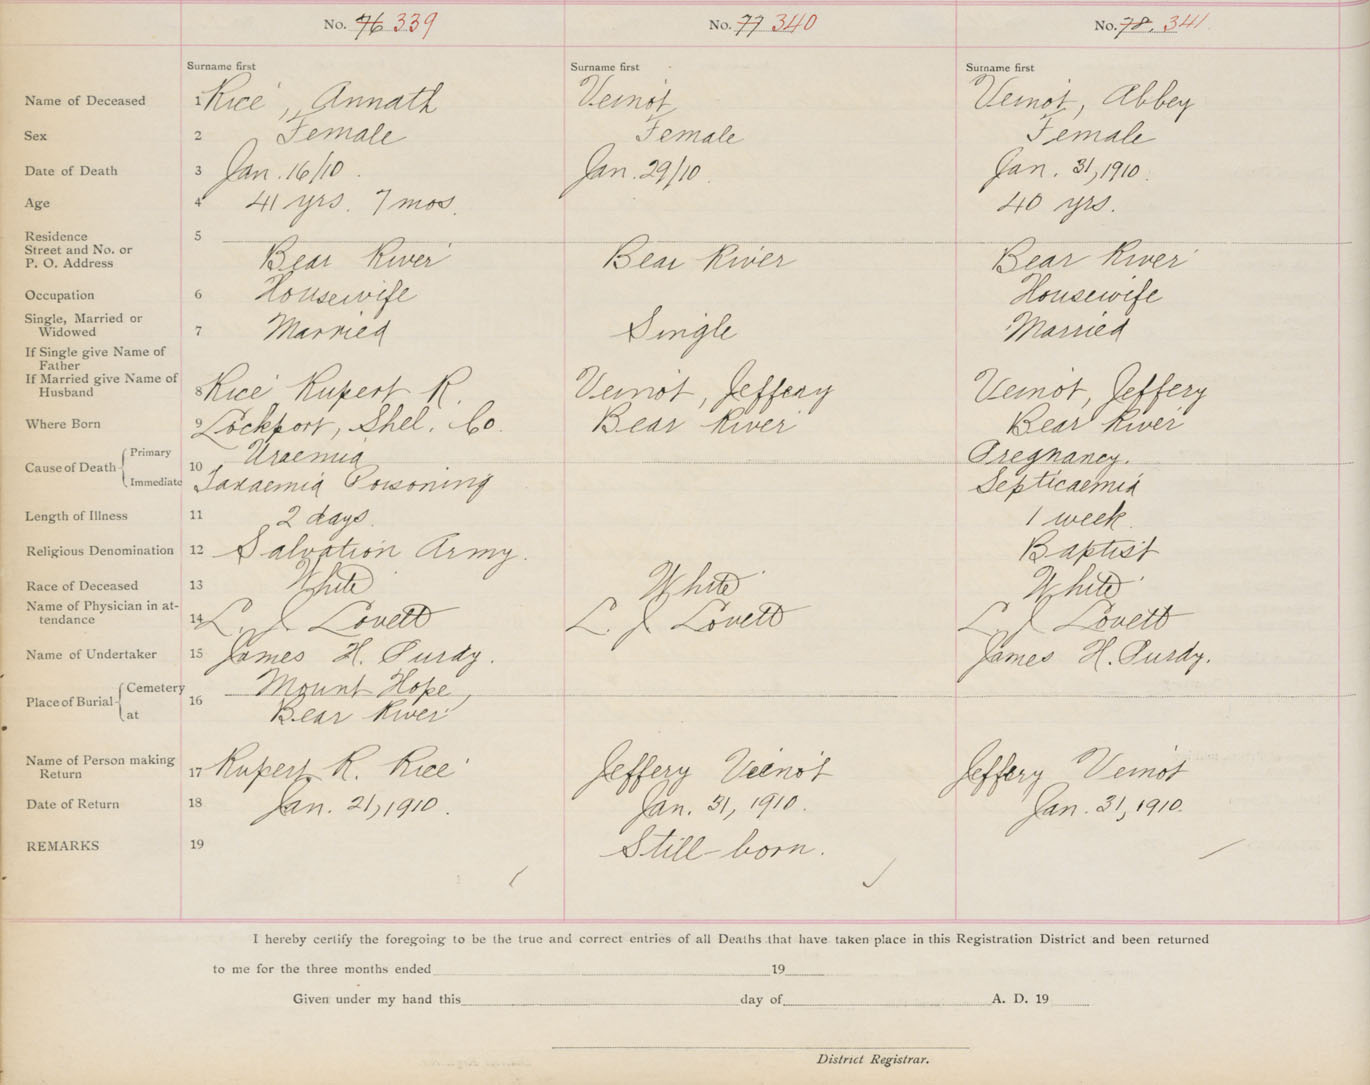 No. 76 339 No. 77 340 No. 78. 341
Surname first Surname first Surname first
Name of Deceased 1 Rice, Annath Veinot Veinot, Abbey
Sex 2 Female Female Female
Date of Death 3 Jan. 16/10. Jan. 29/10. Jan. 31, 1910.
Age 4 41 yrs. 7 mos. 40 yrs.
Residence 5
Street and No. or
P. O. Address Bear River Bear River Bear River
Occupation 6 Housewife Housewife
Single, Married or
Widowed 7 Married Single Married
If Single give Name of
Father
If Married give Name of
Husband 8 Rice Rupert R. Veinot, Jeffery Veinot, Jeffery
Where Born 9 Lockport, Shel. Co. Bear River Bear River
Cause of Death 10
Primary Uraemia Pregnancy.
Immediate Taxaemia Poisoning Septicaemia
Length of Illness 11 2 days. 1 week.
Religious Denomination 12 Salvation Army. Baptist
Race of Deceased 13 White White White
Name of Physician in at-
tendance 14 L. J. Lovett L. J. Lovett L. J. Lovett
Name of Undertaker 15 James H. Purdy. James H. Purdy.
Place of Burial 16
Cemetery Mount Hope,
at Bear River
Name of Person making
Return 17 Rupert R. Rice Jeffery Veinot Jeffery Veinot
Date of Return 18 Jan. 21, 1910. Jan. 31, 1910. Jan. 31, 1910.
REMARKS 19 Still-born.
I hereby certify the foregoing to be the true and correct entries of all Deaths that have taken place in this Registration District and been returned
to me for the three months ended 19
Given under my hand this day of A. D. 19
District Registrar.